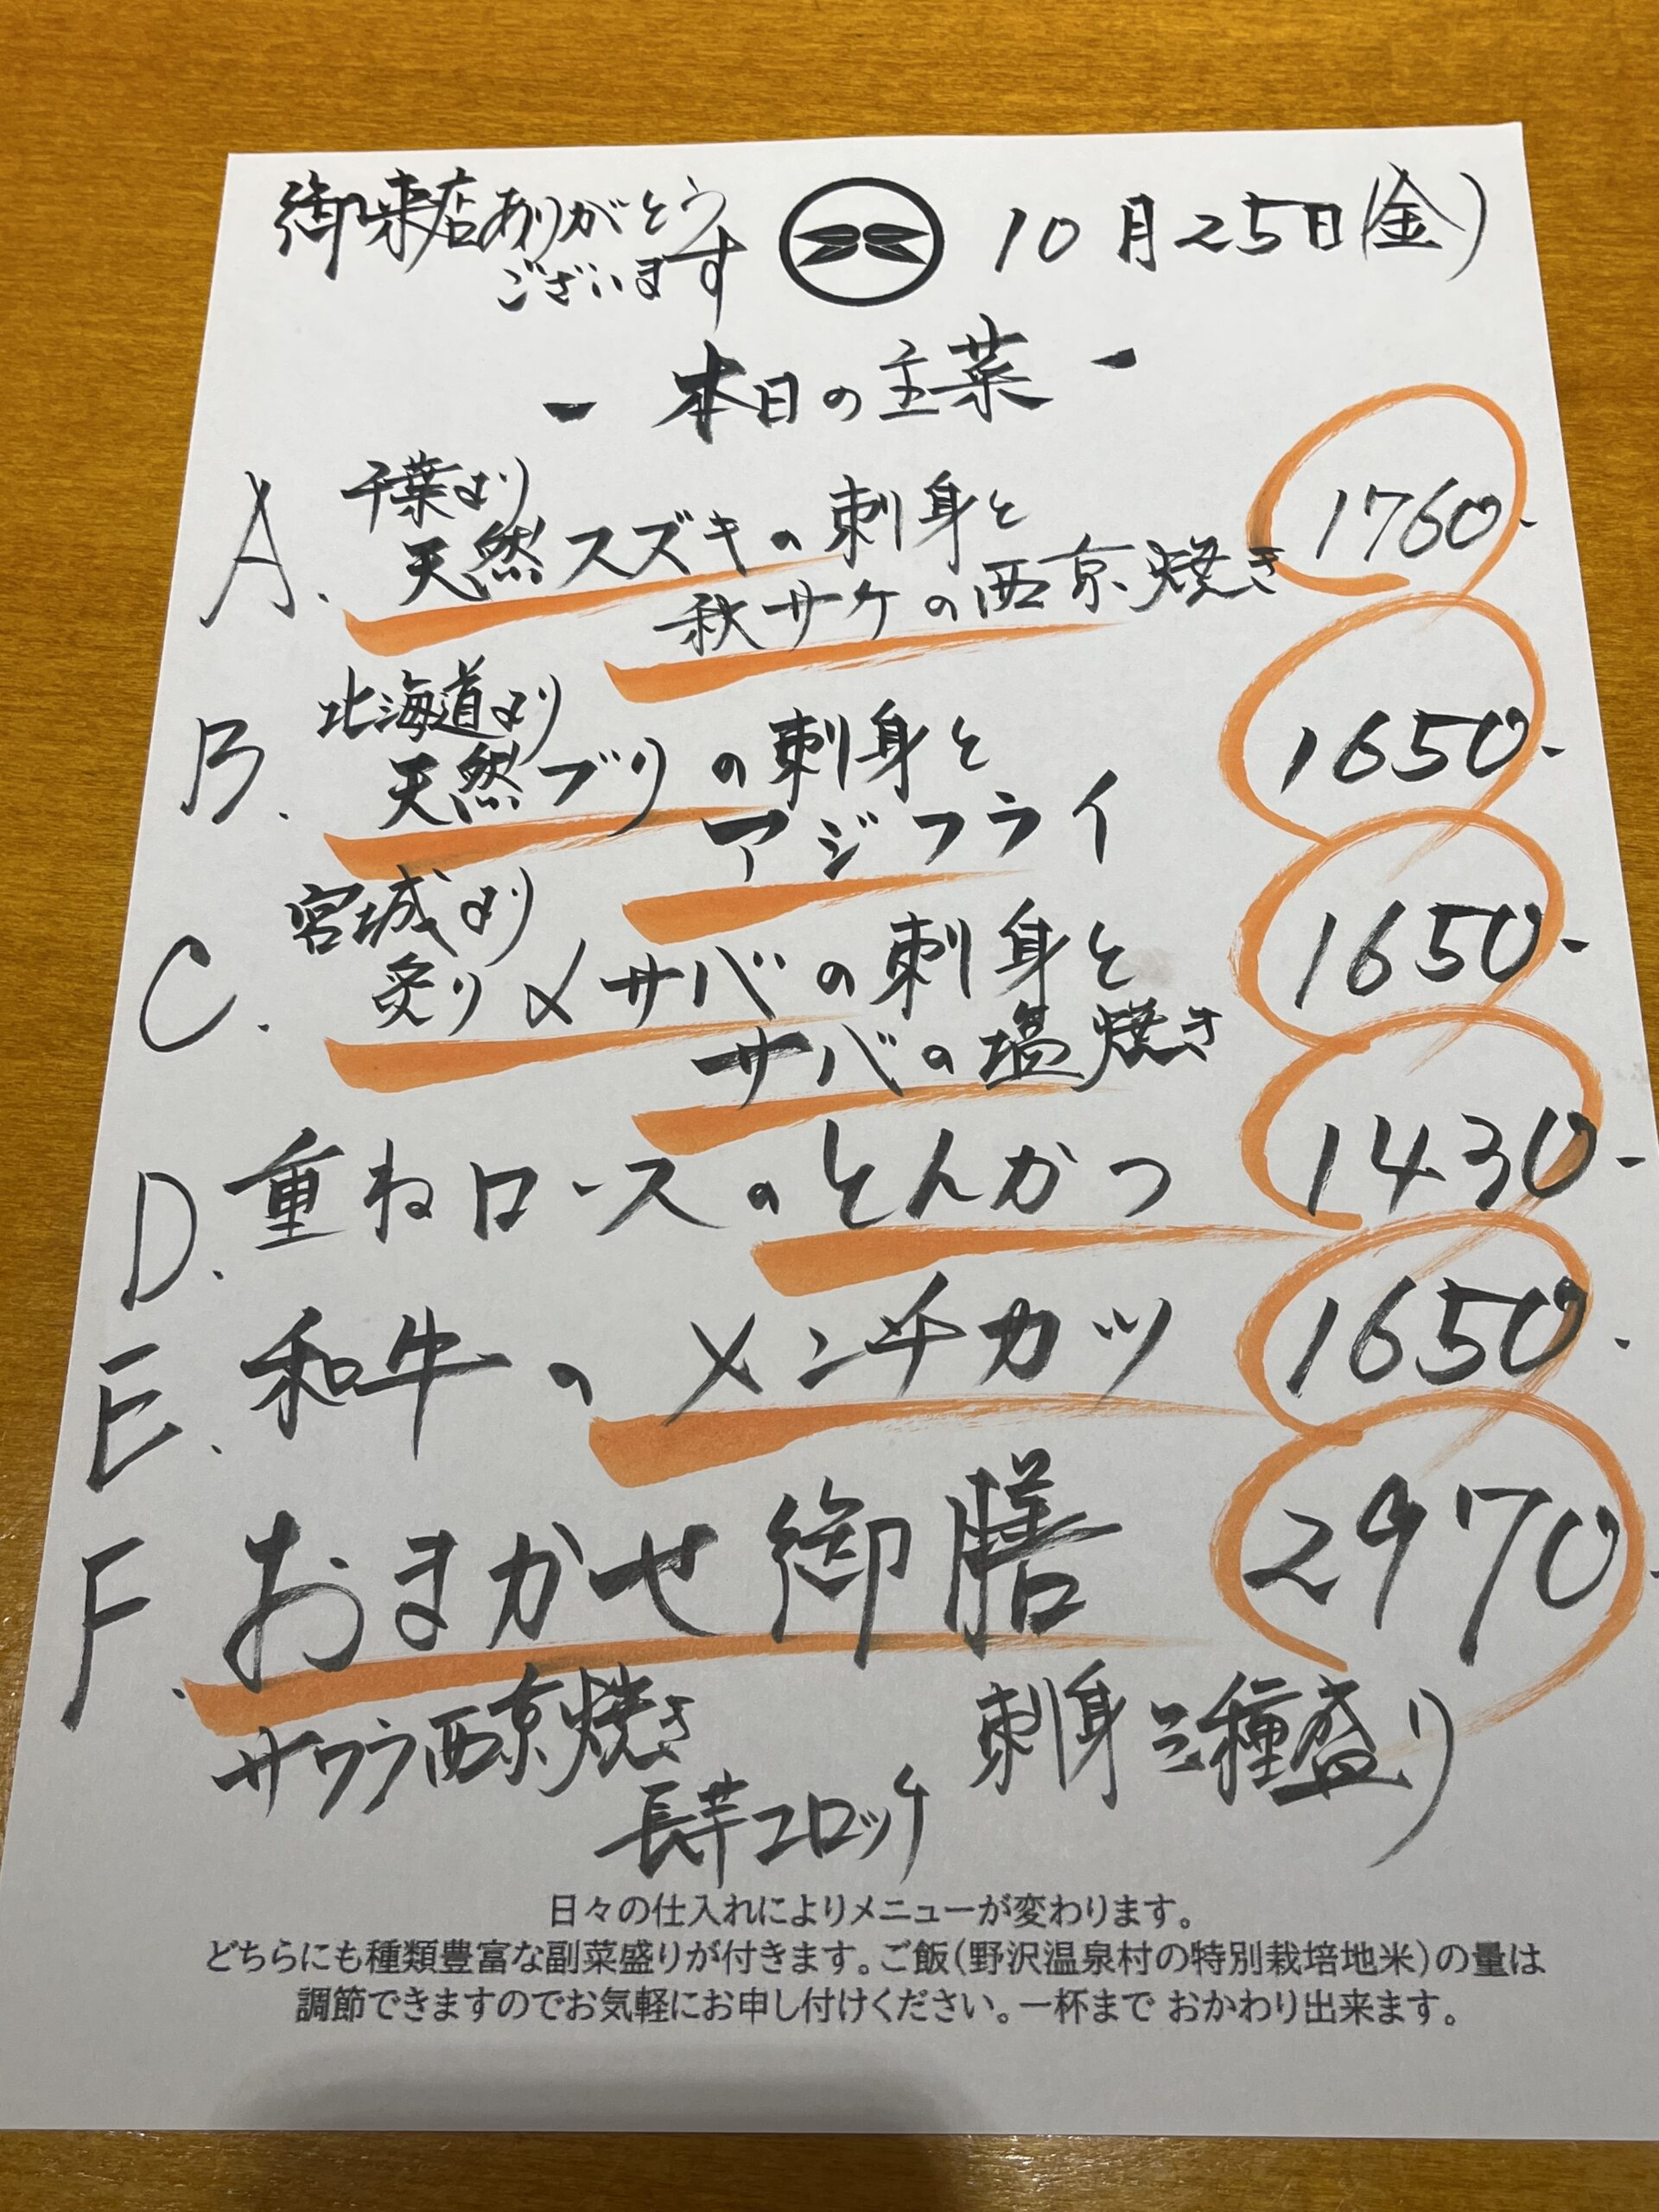 御来店ありがとう
ございます
10月25日(金)
- 本日の主菜 -
A. 千葉より
天然スズキの刺身と
秋サケの西京焼き
1760-
B. 北海道より
天然ブリの刺身と
アジフライ
1650-
C. 宮城より
炙り〆サバの刺身と
サバの塩焼き
1650-
D. 重ねロースのとんかつ 1430-
E. 和牛のメンチカツ 1650-
F. おまかせ御膳 2970-
サワラ西京焼き 刺身三種盛り
長芋コロッケ
日々の仕入れによりメニューが変わります。
どちらにも種類豊富な副菜盛りが付きます。ご飯(野沢温泉村の特別栽培地米)の量は
調節できますのでお気軽にお申し付けください。一杯まで おかわり出来ます。